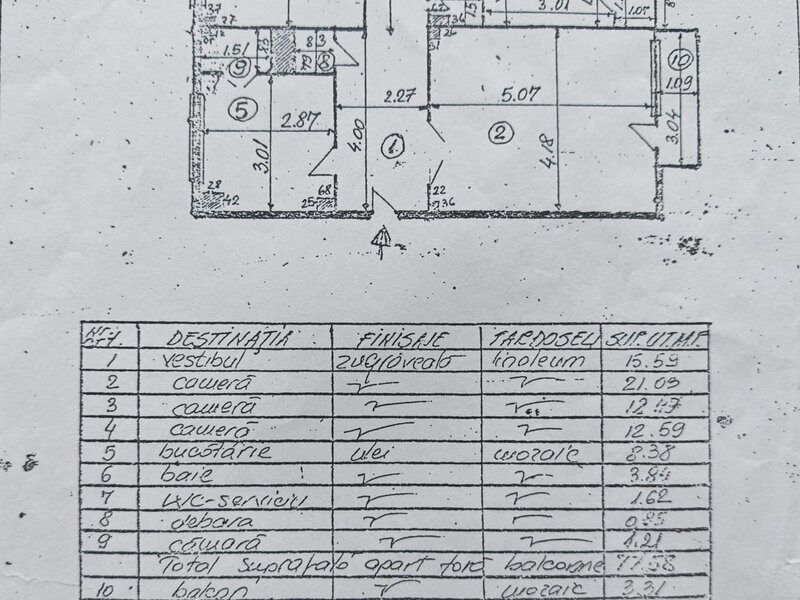 27 27 67 36 1.51 3.01 1.07
26 51
1.51 9 83 8 3 79 8 10
5 2.27 5.07 1.09
2.87 4.00 1 2 3.04
3.01 4.18
28 42 68 25 22 36
DESTINAȚIA FINISAJE PARDOSELI SUP.UT.M.P.
1 vestibul zugrăveală linoleum 15.59
2 cameră 21.09
3 cameră 12.47
4 cameră 12.59
5 bucătărie ulei mozaic 8.38
6 baie 3.84
7 WC-serviciu 1.62
8 debara 0.85
9 cămară 1.21
Total suprafață apart fără balcoane 77.58
10 balcon mozaic 3.31